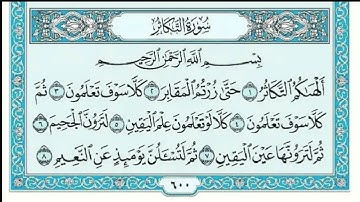 سُورَةُ التَّكَاثُرِ
بِسْمِ اللَّهِ الرَّحْمَٰنِ الرَّحِيمِ
أَلْهَاكُمُ التَّكَاثُرُ ١ حَتَّىٰ زُرْتُمُ الْمَقَابِرَ ٢ كَلَّا سَوْفَ تَعْلَمُونَ ٣ ثُمَّ
كَلَّا سَوْفَ تَعْلَمُونَ ٤ كَلَّا لَوْ تَعْلَمُونَ عِلْمَ الْيَقِينِ ٥ لَتَرَوُنَّ الْجَحِيمَ ٦
ثُمَّ لَتَرَوُنَّهَا عَيْنَ الْيَقِينِ ٧ ثُمَّ لَتُسْأَلُنَّ يَوْمَئِذٍ عَنِ النَّعِيمِ ٨
٦٠٠